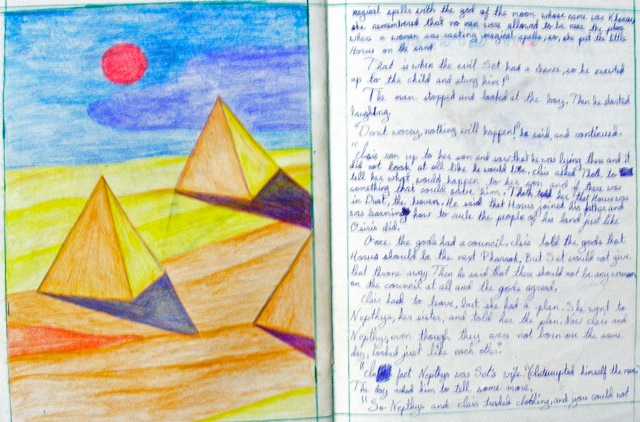 magical spells with the god of the moon, whose name was Khonsu,
she remembered that no men were allowed to be near the place
where a woman was casting magical spells, so, she put the little
Horus on the sand.
That is when the evil Set had a chance, so he crawled
up to the child and stung him!"
The man stopped and looked at the boy. Then he started
laughing.
"Don't worry, nothing will happen!" he said, and continued.
"Isis ran up to her son and saw that he was lying there and it
did not look at all like he would live. Isis asked Thoth to
tell her what would happen to her son and if there was
something that could save him. Thoth told her that Horus was
in Duat, the heaven. He said that Horus joined his father and
was learning how to rule the people of his land just like
Osiris did.
Once the gods had a council. Isis told the gods that
Horus should be the next Pharaoh. But Set would not give
that throne away. Then he said that there should not be any woman
on the council at all and the gods agreed.
Isis had to leave, but she had a plan. She went to
Nepthys, her sister, and told her the plan. Now Isis and
Nepthys, even though they were not born on the same
day, looked just like each other."
fact Nepthys was Set's wife." interrupted himself the man.
The boy asked him to tell some more.
"So Nepthys and Isis traded clothing, and you could not